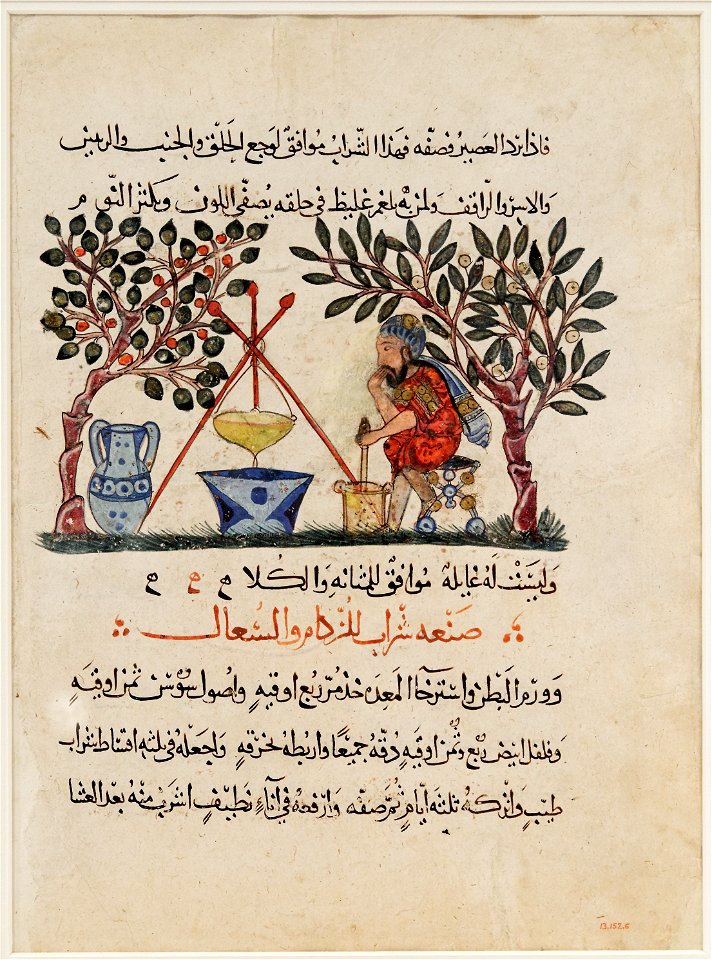 فاذا برد العصير فصفه فهذا الشراب موافق لوجع الحلق والجنب والرئتين
والاسر والراقف ولمن به بلغم غليظ في حلقه يصفي اللون ويكثر النوم
وليست له غايلة موافق للمثانه والكلا ح ح ح
صنعه شراب للزكام والسعال
وورم البطن واسترخا المعده خذ مر ربع اوقيه واصول سوسن ثمن اوقيه
وفلفل ابيض ربع وثمن اوقيه دقه جميعا واربطه بخرقه واجعله في ثلثه اقساط شراب
طيب واتركه ثلثه ايام ثم صفه وارفعه في اناء نظيف اشرب منه بعد العشا
13.152.6